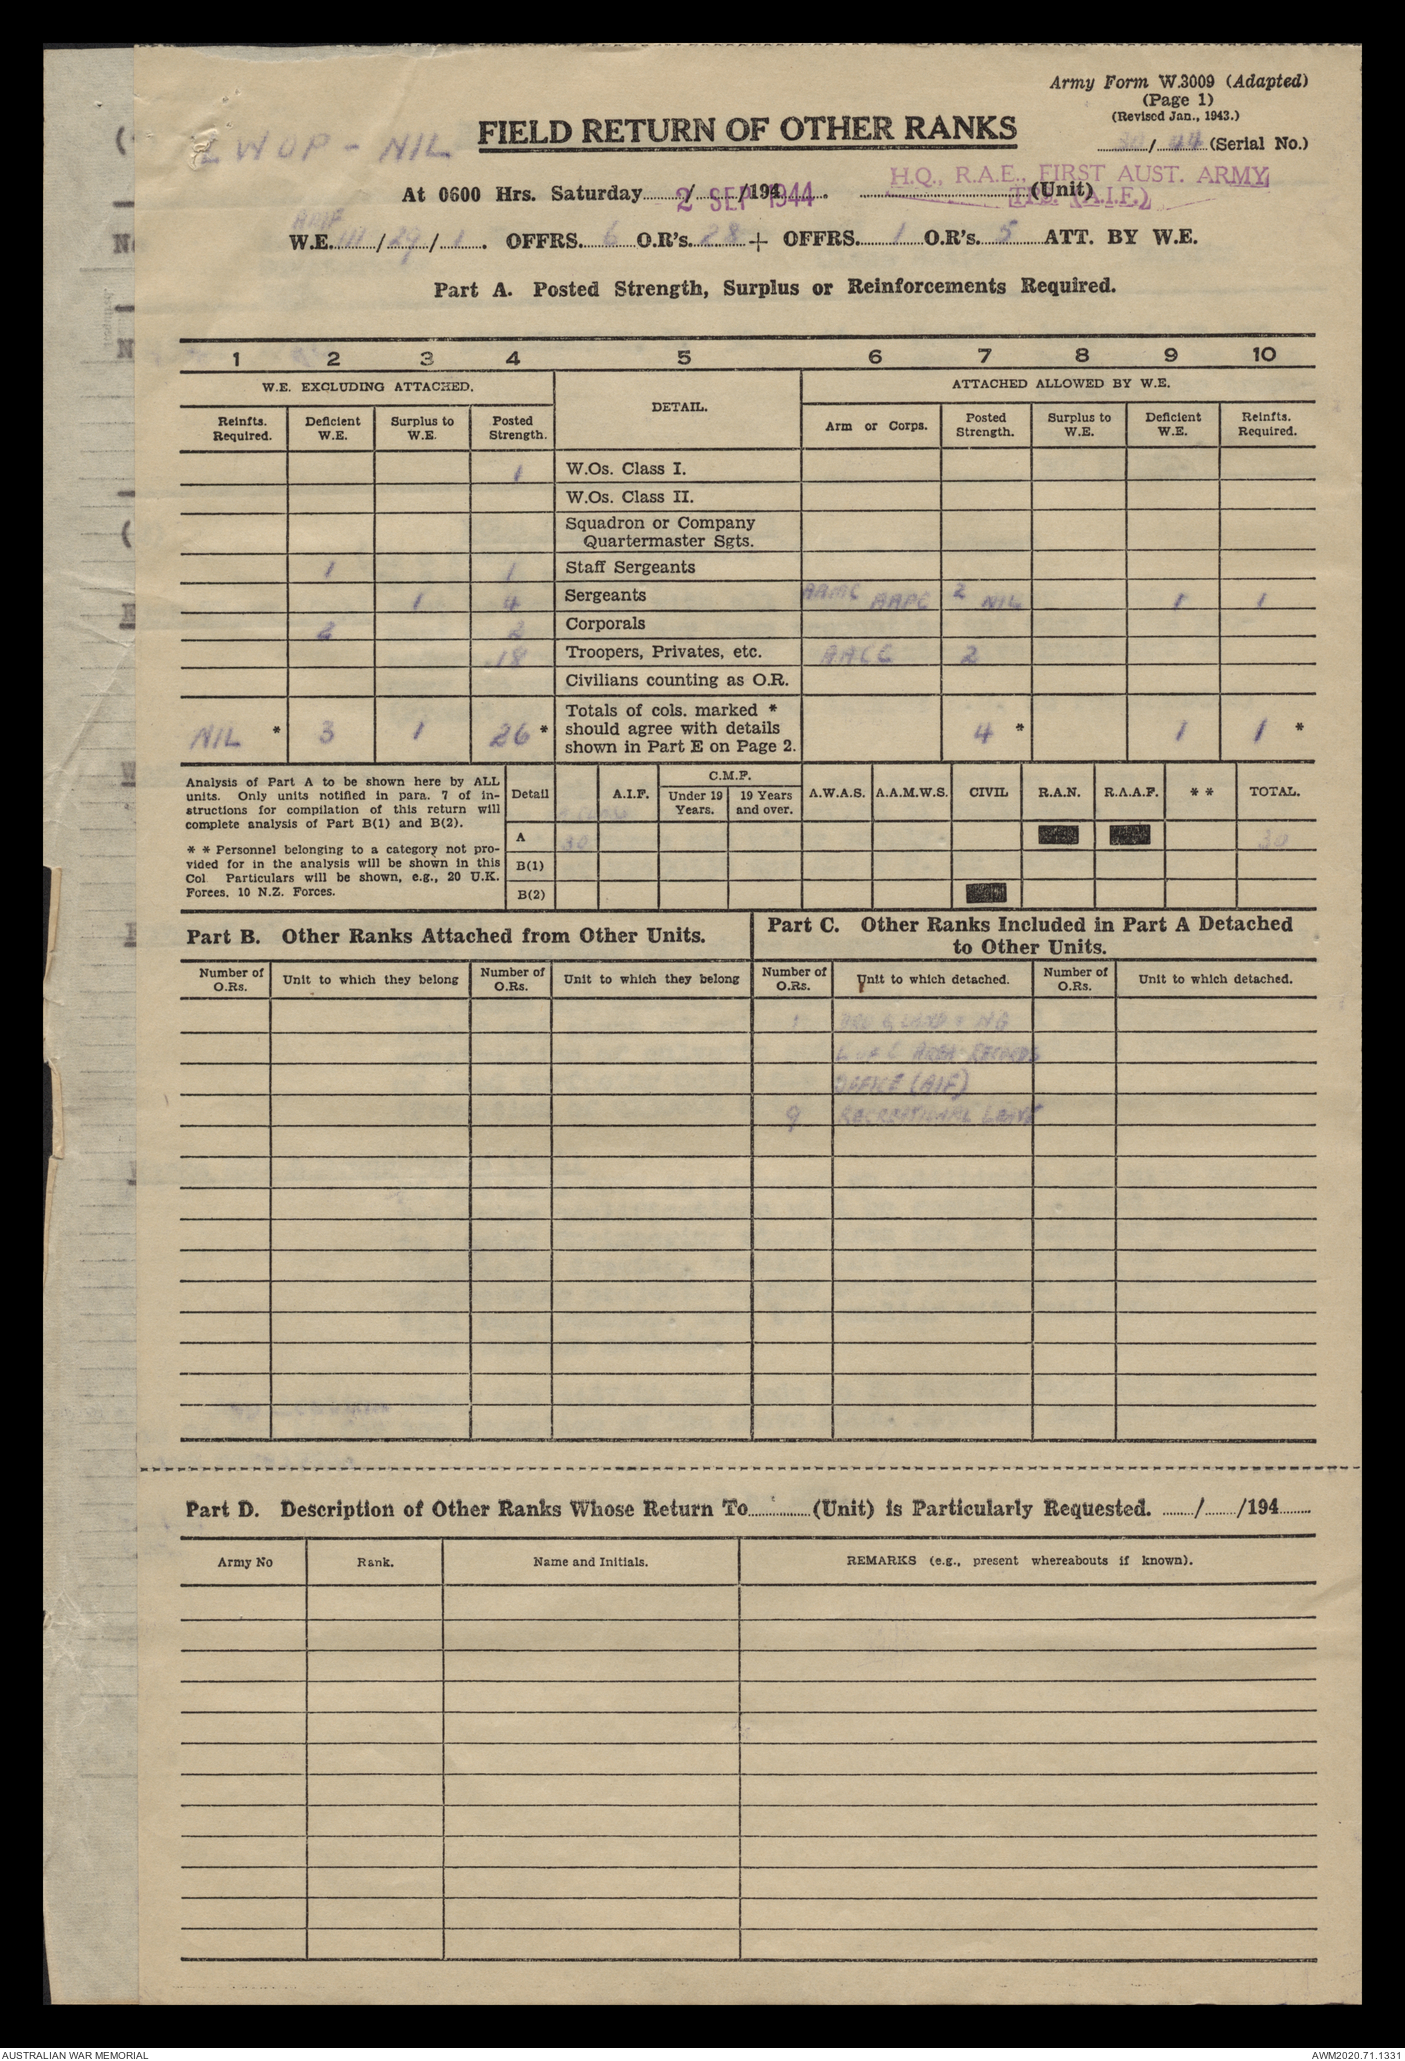 Army Form W.3009 (Adapted)
(Page 1)
(Revised Jan., 1943.)
LWOP - NIL
FIELD RETURN OF OTHER RANKS
30/44 (Serial No.)
H.Q., R.A.E., FIRST AUST. ARMY
TPS. (A.I.F.)
At 0600 Hrs. Saturday ....../....../194...... 2 SEP 1944 ...... (Unit)
W.E. III/29/1. OFFRS. 6 O.R's. 28 + OFFRS. 1 O.R's. 5 ATT. BY W.E.
Part A. Posted Strength, Surplus or Reinforcements Required.
1 2 3 4 5 6 7 8 9 10
W.E. EXCLUDING ATTACHED. DETAIL. ATTACHED ALLOWED BY W.E.
Reinfts. Required. Deficient W.E. Surplus to W.E. Posted Strength. Arm or Corps. Posted Strength. Surplus to W.E. Deficient W.E. Reinfts. Required.
1 W.Os. Class I.
W.Os. Class II.
Squadron or Company
Quartermaster Sgts.
1 1 Staff Sergeants
1 4 Sergeants AAMC AAPC 2 NIL 1 1
2 2 Corporals
18 Troopers, Privates, etc. AACC 2
Civilians counting as O.R.
Totals of cols. marked *
should agree with details
shown in Part E on Page 2.
NIL * 3 1 26 * 4 * 1 1 *
Analysis of Part A to be shown here by ALL
units. Only units notified in para. 7 of in-
structions for compilation of this return will
complete analysis of Part B(1) and B(2).
* * Personnel belonging to a category not pro-
vided for in the analysis will be shown in this
Col Particulars will be shown, e.g., 20 U.K.
Forces, 10 N.Z. Forces.
Detail A.I.F. C.M.F. Under 19 Years. 19 Years and over. A.W.A.S. A.A.M.W.S. CIVIL R.A.N. R.A.A.F. * * TOTAL.
A 30 30
B(1)
B(2)
Part B. Other Ranks Attached from Other Units.
Part C. Other Ranks Included in Part A Detached
to Other Units.
Number of O.Rs. Unit to which they belong Number of O.Rs. Unit to which they belong Number of O.Rs. Unit to which detached. Number of O.Rs. Unit to which detached.
1
L of C AREA RECORDS
OFFICE (AIF)
9 RECREATIONAL LEAVE
Part D. Description of Other Ranks Whose Return To ............ (Unit) is Particularly Requested. ....../....../194......
Army No Rank. Name and Initials. REMARKS (e.g., present whereabouts if known).
AUSTRALIAN WAR MEMORIAL AWM2020.71.1331